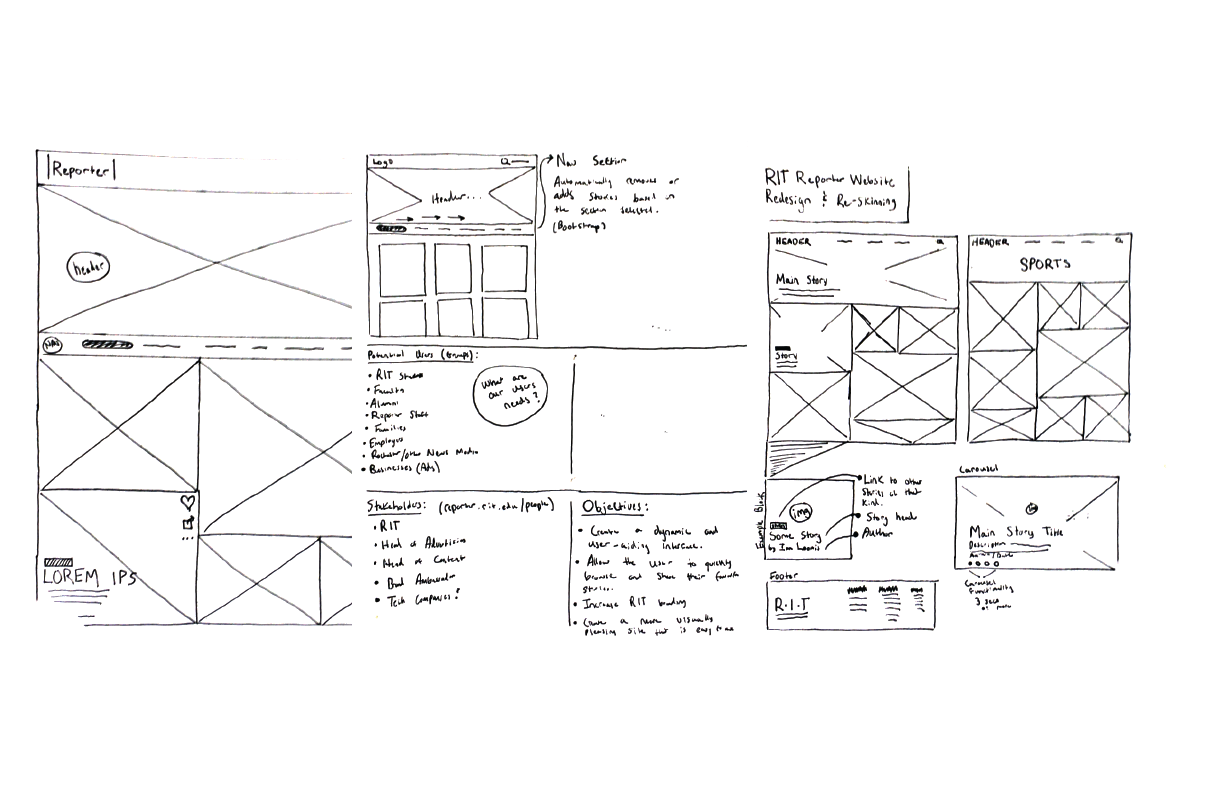 Reporter
header
NAV
LOREM IPS
Logo
Header...
Nav Section
Automatically removes or
adds stories based on
the section selected.
(Bootstrap)
Potential Users (Groups):
• RIT Students
• Faculty
• Alumni
• Reporter Staff
• Families
• Employers
• Rochester/other News Media
• Businesses (Ads)
What are
our users
needs?
Stakeholders: (reporter.rit.edu/people)
• RIT
• Head of Advertising
• Head of Content
• Brand Ambassador
• Tech Companies?
Objectives:
• Create a dynamic and
user-guiding interface.
• Allow the user to quickly
browse and share their favorite
stories.
• Increase RIT branding
• Create a more visually
pleasing site that is easy to use
RIT Reporter Website
Redesign & Re-Skinning
HEADER
Main Story
Story
HEADER
SPORTS
Example Block
img
Some Story
by Ian
Link to other
stories of that
kind.
Story head
Author
Footer
R.I.T
Carousel
Main Story Title
Description
Carousel
Functionality
3 secs
or more